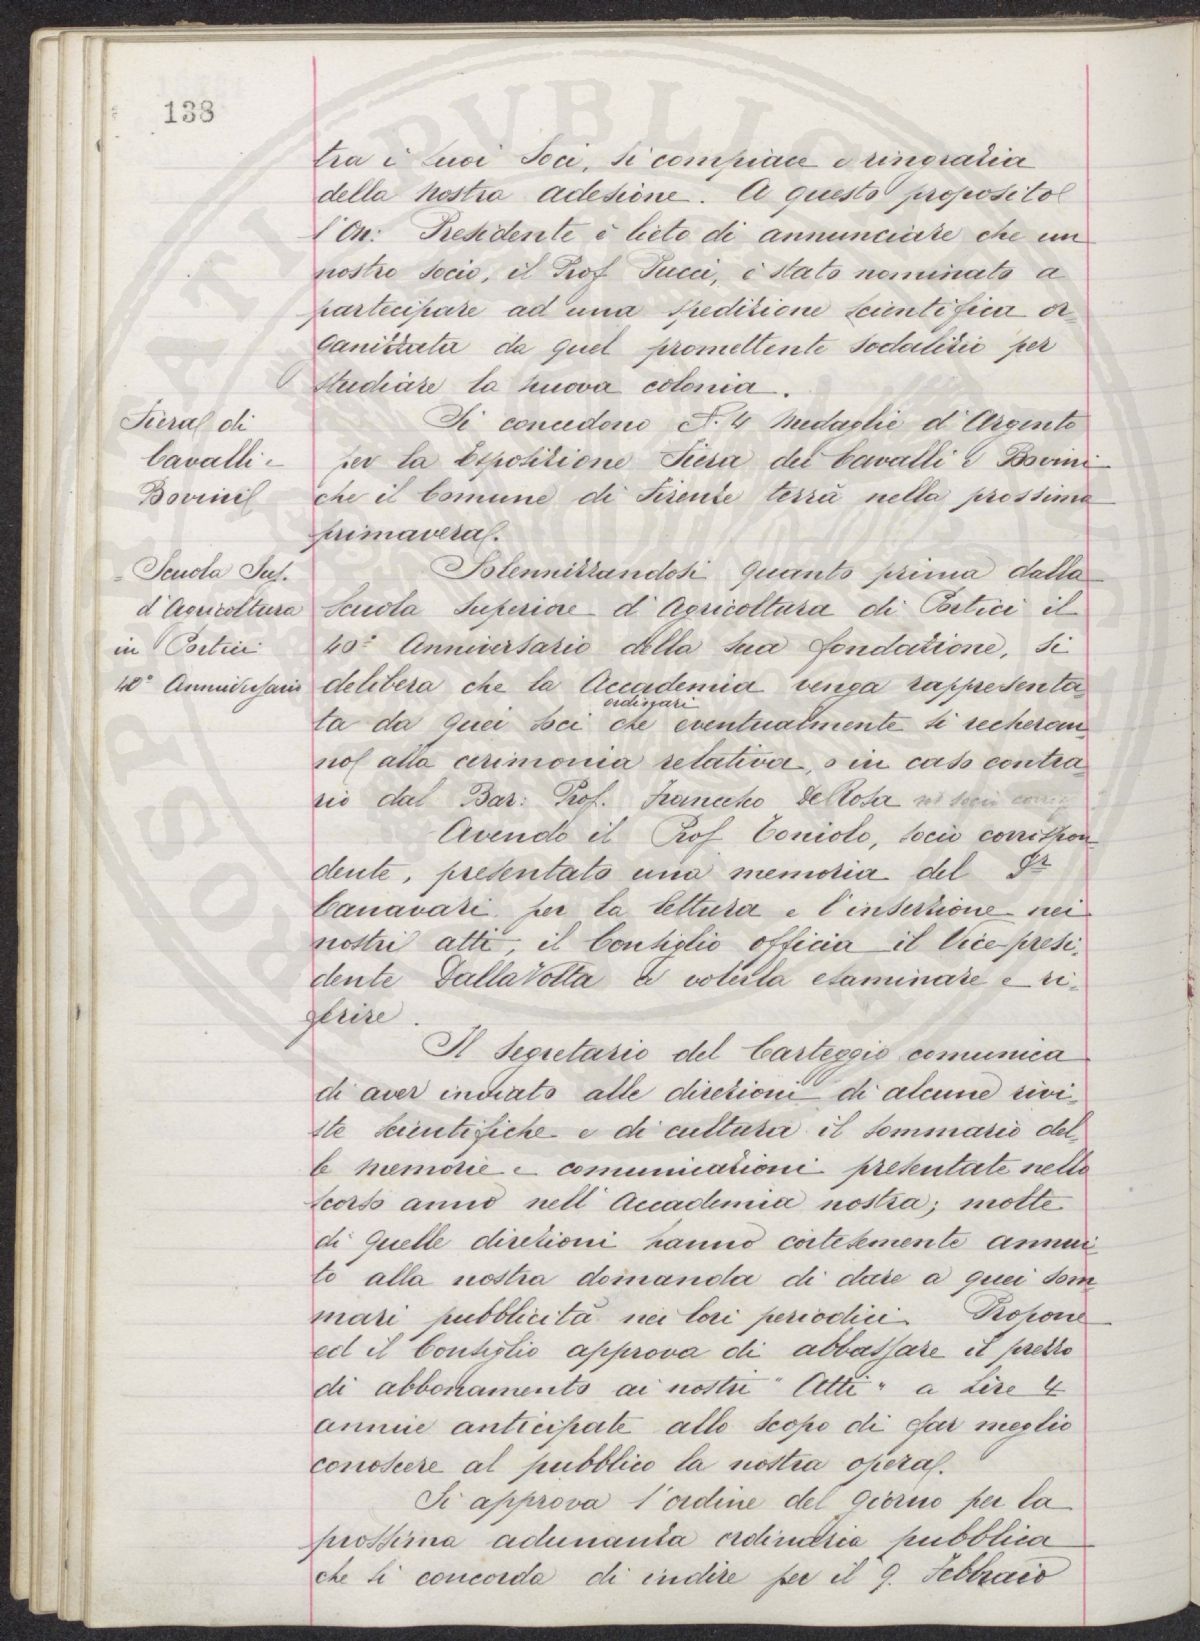 138
tra i suoi Soci, si compiace e ringrazia
della nostra adesione. A questo proposito
l'On: Presidente è lieto di annunciare che un
nostro socio, il Prof Pucci, è stato nominato a
partecipare ad una spedizione scientifica or-
ganizzata da quel promettente sodalizio per
studiare la nuova colonia.
Fiera di
Cavalli e
Bovini
Si concedono N. 4 Medaglie d'Argento
per la Esposizione Fiera dei Cavalli e Bovini
che il Comune di Firenze terrà nella prossima
primavera.
Scuola Sup.
d'Agricoltura
in Portici
40° Anniversario
Solennizzandosi quanto prima dalla
Scuola Superiore d'Agricoltura di Portici il
40° Anniversario della sua fondazione, si
delibera che la Accademia venga rappresenta-
ordinari
ta da quei soci che eventualmente si recheran-
no alla cerimonia relativa, o in caso contra-
rio dal Bar: Prof. Francesco De Rosa
Avendo il Prof Toniolo, socio corrispon-
dente, presentato una memoria del Dr
Canavari per la lettura e l'inserzione nei
nostri atti, il Consiglio officia il Vice presi-
dente Dalla Volta a volerla esaminare e ri-
ferire.
Il Segretario del Carteggio comunica
di aver inviato alle direzioni di alcune rivi-
ste scientifiche e di cultura il sommario del-
le memorie e comunicazioni presentate nello
scorso anno nell'Accademia nostra; molte
di quelle direzioni hanno cortesemente annui-
to alla nostra domanda di dare a quei som-
mari pubblicità nei lori periodici. Propone
ed il Consiglio approva di abbassare il prezzo
di abbonamento ai nostri "Atti" a Lire 4
annue anticipate allo scopo di far meglio
conoscere al pubblico la nostra opera.
Si approva l'ordine del giorno per la
prossima adunanza ordinaria pubblica
che si concorda di indire per il 9. Febbraio